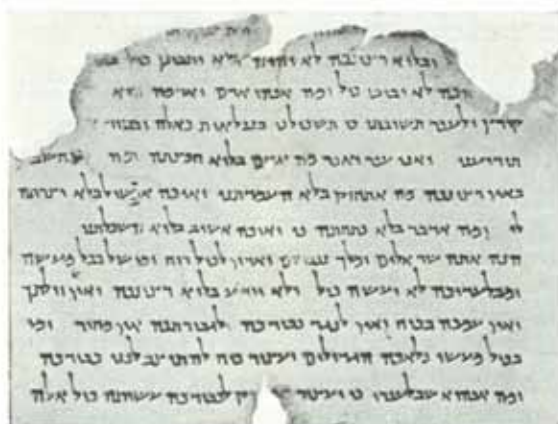 ובלוא רצונכה לא יהיה ולא יתבונן כול
כה לא יביט כול ומה אפהו אדם ואדמה הוא
קורץ ולעפר תשובתו כי תשכילנו בנפלאות כאלה ובסוד
תודיענו ואני עפר ואפר מה אזום בלוא חפצתה ומה אתחשב
באין רצונכה מה אתחזק בלא העמדתני ואיכה אכשול בלא יצרתה
לי ומה אדבר בלא פתחתה פי ואיכה אשיב בלוא השכלתני
הנה אתה שר אלים ומלך נכבדים ואדון לכול רוח ומושל בכל מעשה
ומבלעדיכה לא יעשה כול ולא יודע בלוא רצונכה ואין זולתך
ואין עמכה בכוח ואין לנגד כבודכה ולגבורתכה אין מחיר ומי
בכול מעשי פלאכה הגדולים יעצור כוח להתיצב לפני כבודכה
ומה אפהוא שב לעפרו כי יעצור רק לכבודכה עשיתה כול אלה